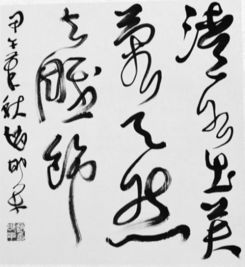 清水出芙
蓉天然
去雕饰
甲午年秋